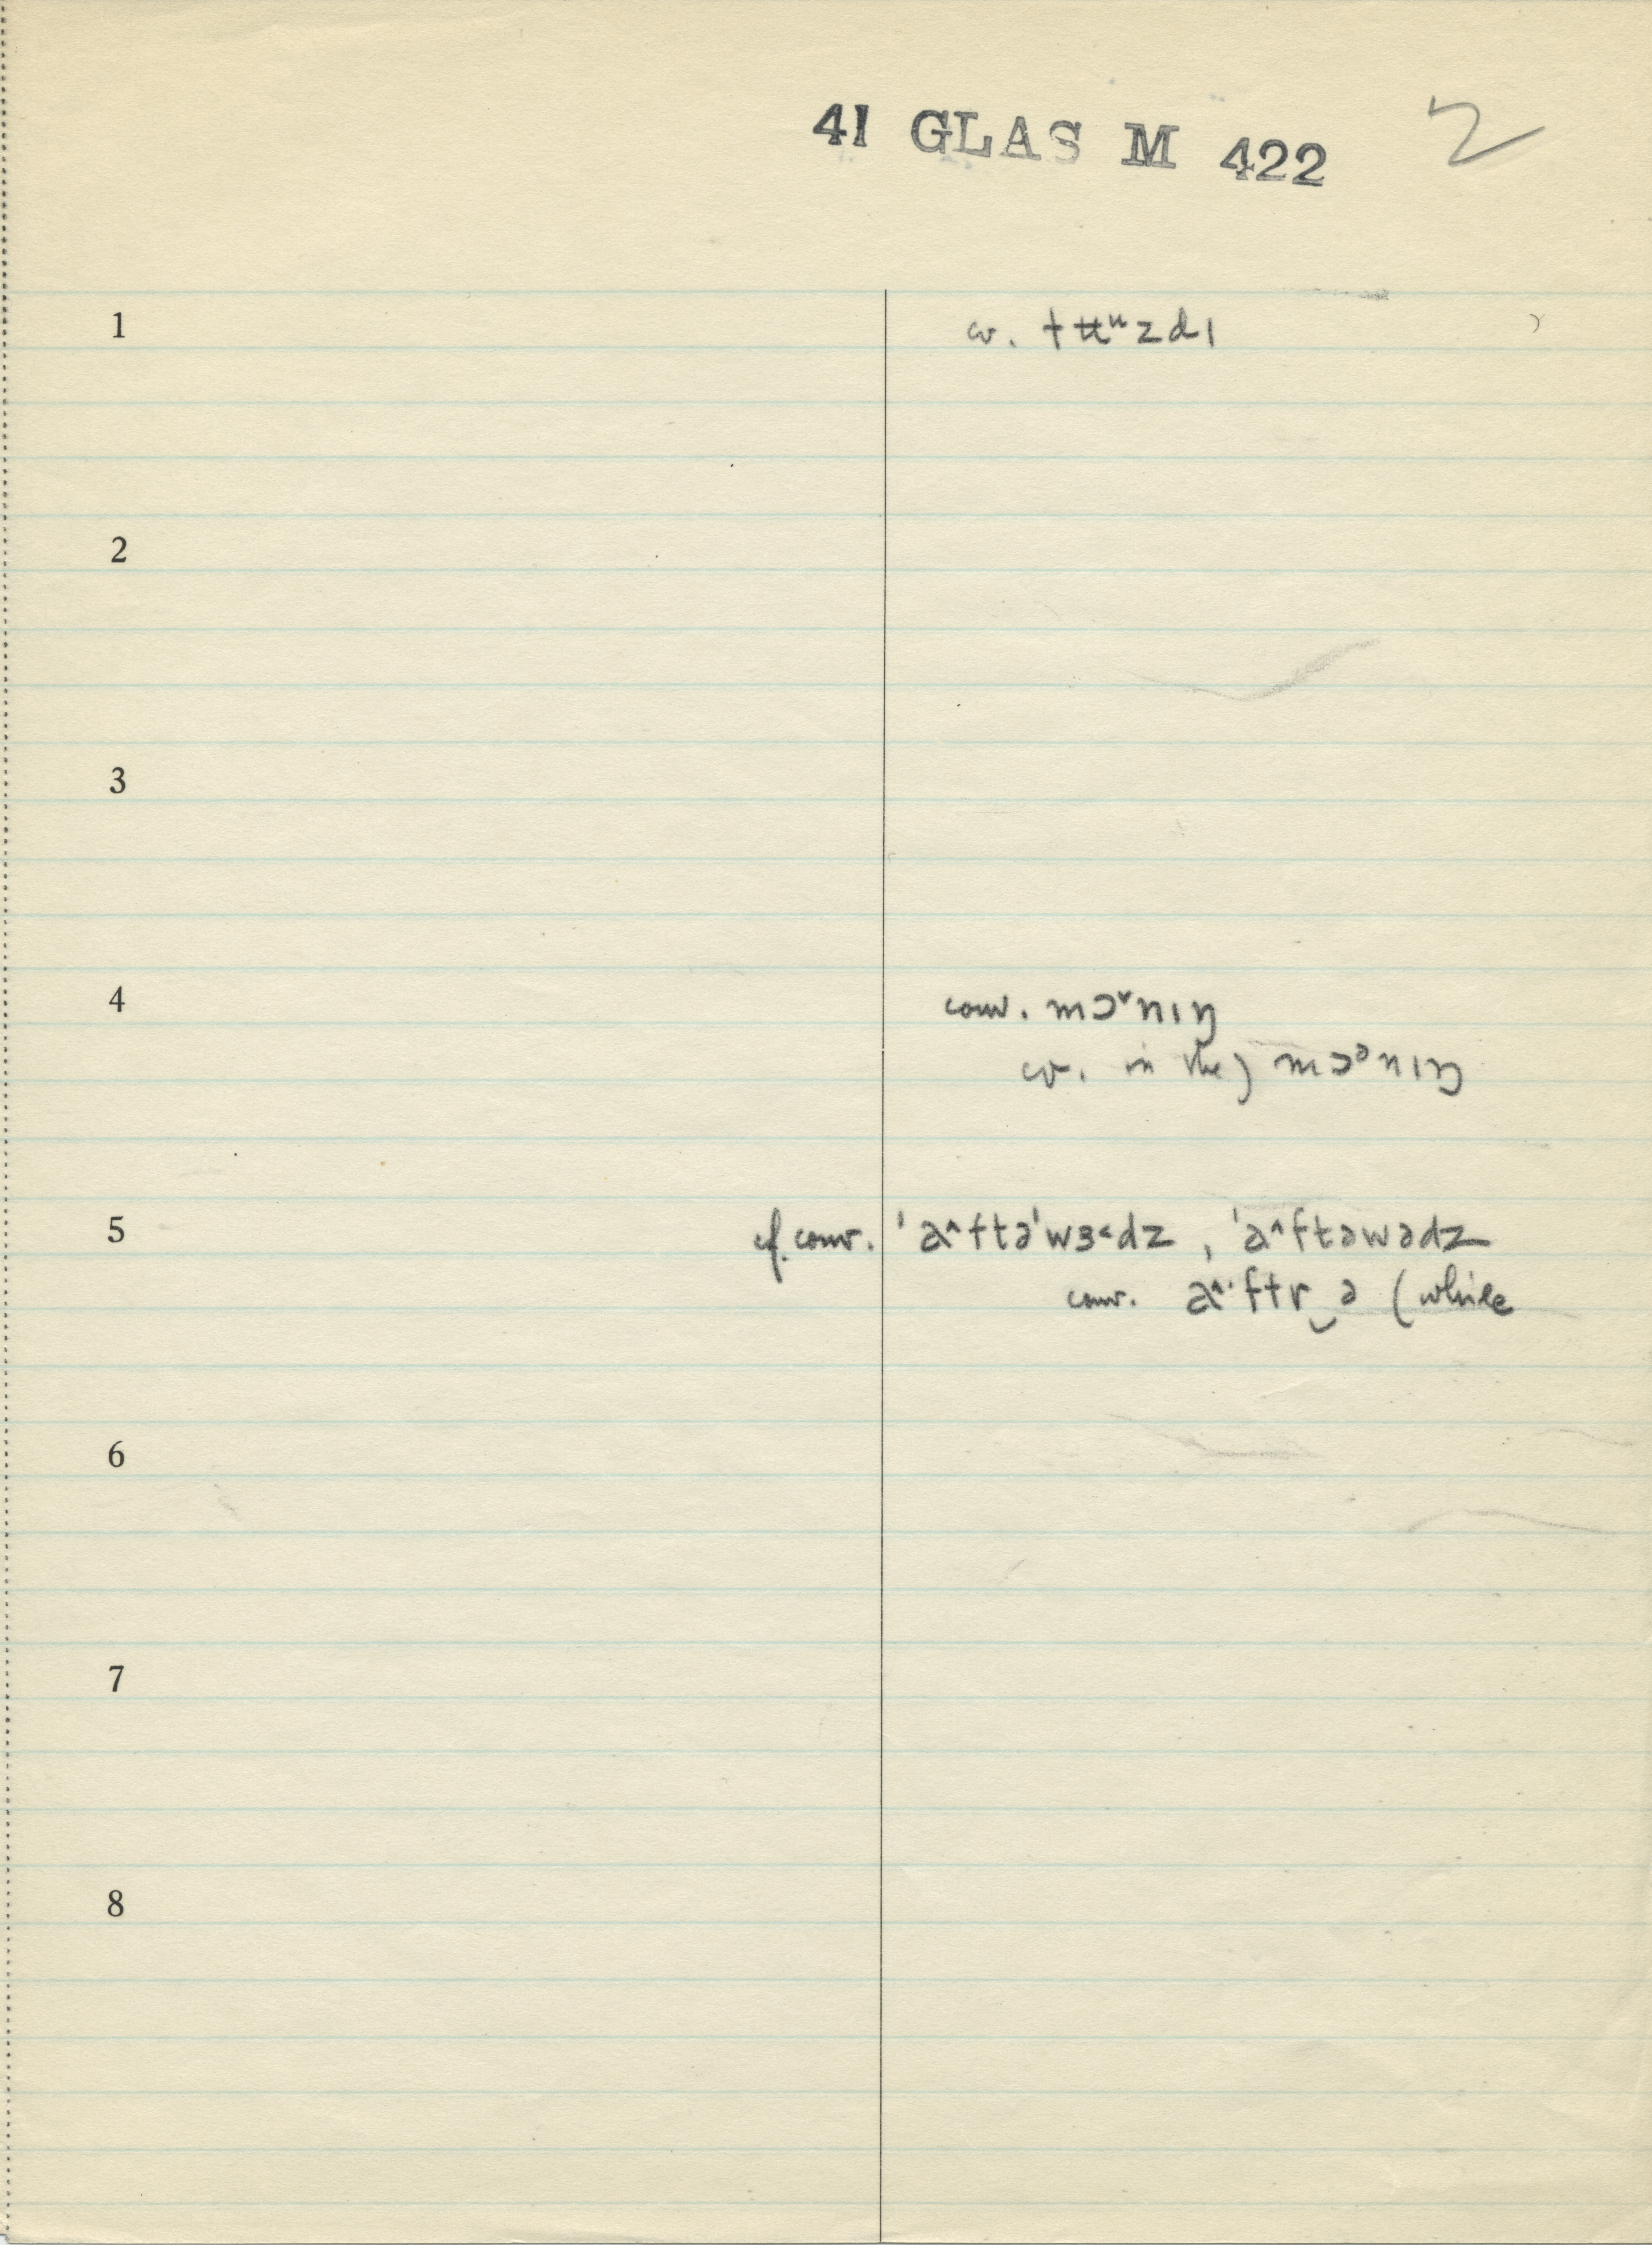 41 GLAS M 422 2
1 cv. tʉᵘzdɪ
2
3
4 conv. mɔ˅nɪŋ
cv. in the) mɔᵊnɪŋ
5 cf. conv. ˈa^ftəˈwɜ˂dz , ˈa^ftəwədz
conv. a^·ftr‿ə (while
6
7
8